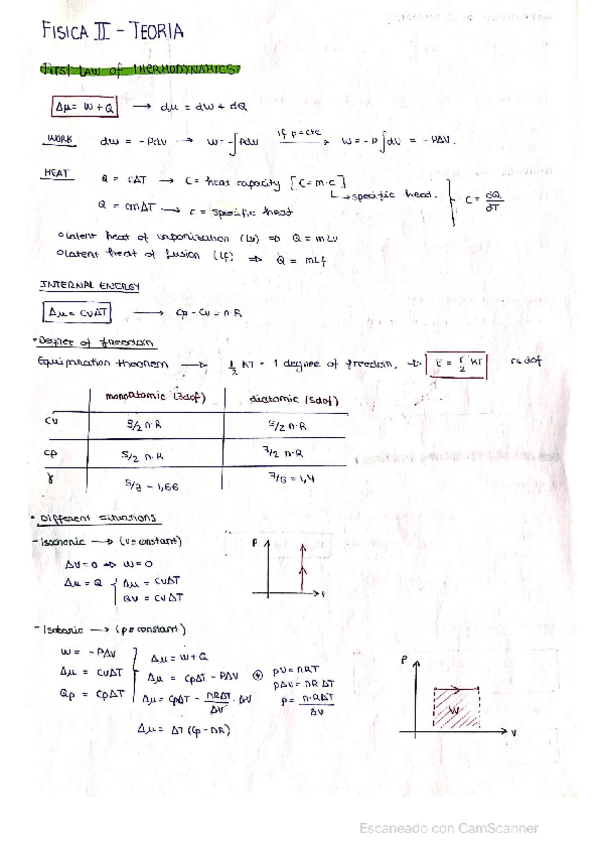 FISICA II - TEORIA
FIRST LAW OF THERMODYNAMICS
Δμ = W + Q → dμ = dW + dQ
WORK dW = -PdV → W = -∫PdV if P=cte → W = -P∫dV = -PΔV.
HEAT Q = CΔT → C = heat capacity [C = m·c]
↳ specific heat.
C = dQ/dT
Q = cmΔT → c = specific heat
○ latent heat of vaporization (Lv) ⇒ Q = mLv
○ latent heat of fusion (Lf) ⇒ Q = mLf
INTERNAL ENERGY
Δμ = CvΔT → Cp - Cv = n·R
• Degree of freedom
Equipartition theorem → 1/2 KT - 1 degree of freedom. → E = r/2 KT r=dof
monoatomic (3dof) diatomic (5dof)
Cv 3/2 n·R 5/2 n·R
Cp 5/2 n·R 7/2 n·R
γ 5/3 - 1,66 7/5 = 1,4
• Different situations
- Isochoric → (v=constant)
P
ΔV=0 ⇒ W=0
Δμ = Q { Δμ = CvΔT
QV = CvΔT
- Isobaric → (p=constant)
W = -PΔV
Δμ = W+Q
Δμ = CvΔT
Δμ = CpΔT - PΔV
PV = nRT
PΔV = nRΔT
Qp = CpΔT
Δμ = CpΔT - nRΔT/ΔV · ΔV
P = n·RΔT/ΔV
Δμ = ΔT (Cp - nR)
P
W
V
Escaneado con CamScanner